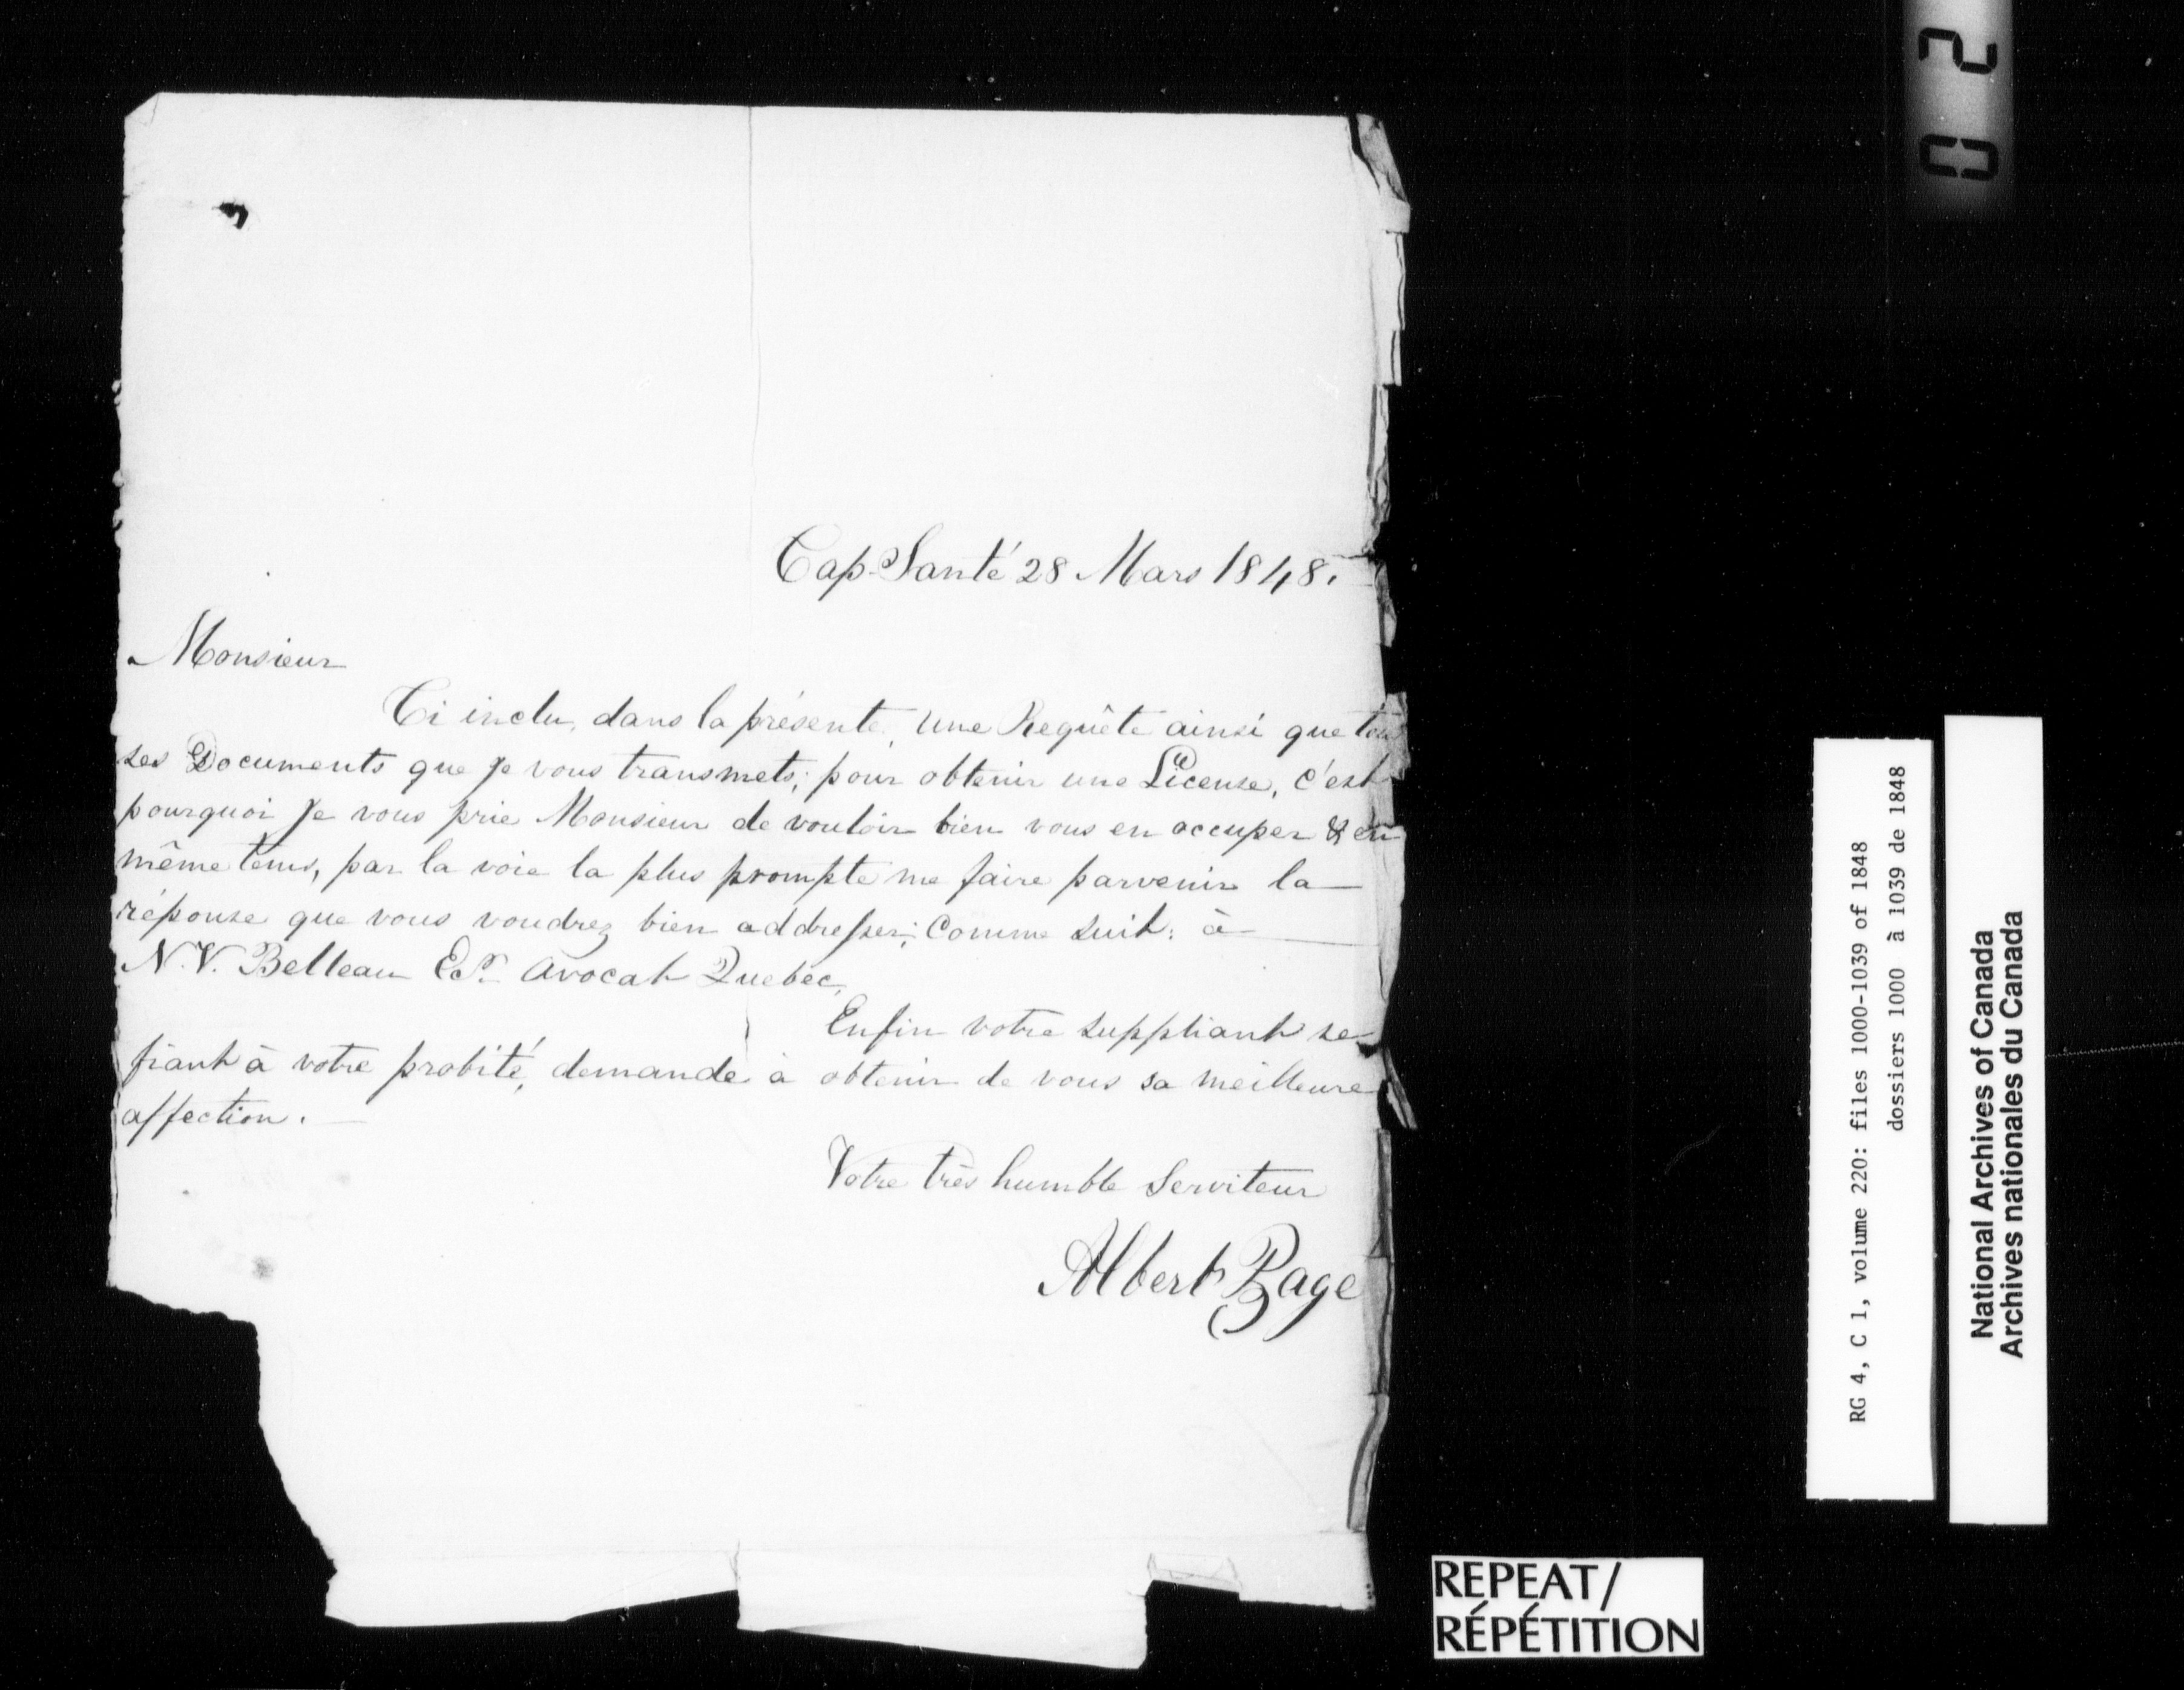 Cap-Santé 28 Mars 1848.
Monsieur
Ci inclu, dans la présente, une Requête ainsi que tou
ses Documents que je vous transmets; pour obtenir une License, c'est
pourquoi je vous prie Monsieur de vouloir bien vous en occuper & en
même tems, par la voie la plus prompte me faire parvenir la
réponse que vous voudrez bien addresser; Comme suit: à
N. V. Belleau Ecr. Avocat Quebec,
Enfin votre suppliant se
fiant à votre probité, demande à obtenir de vous sa meilleure
affection.
Votre très humble Serviteur
Albert Page
02
RG 4, C 1, volume 220: files 1000-1039 of 1848
dossiers 1000 à 1039 de 1848
National Archives of Canada
Archives nationales du Canada
REPEAT/
RÉPÉTITION